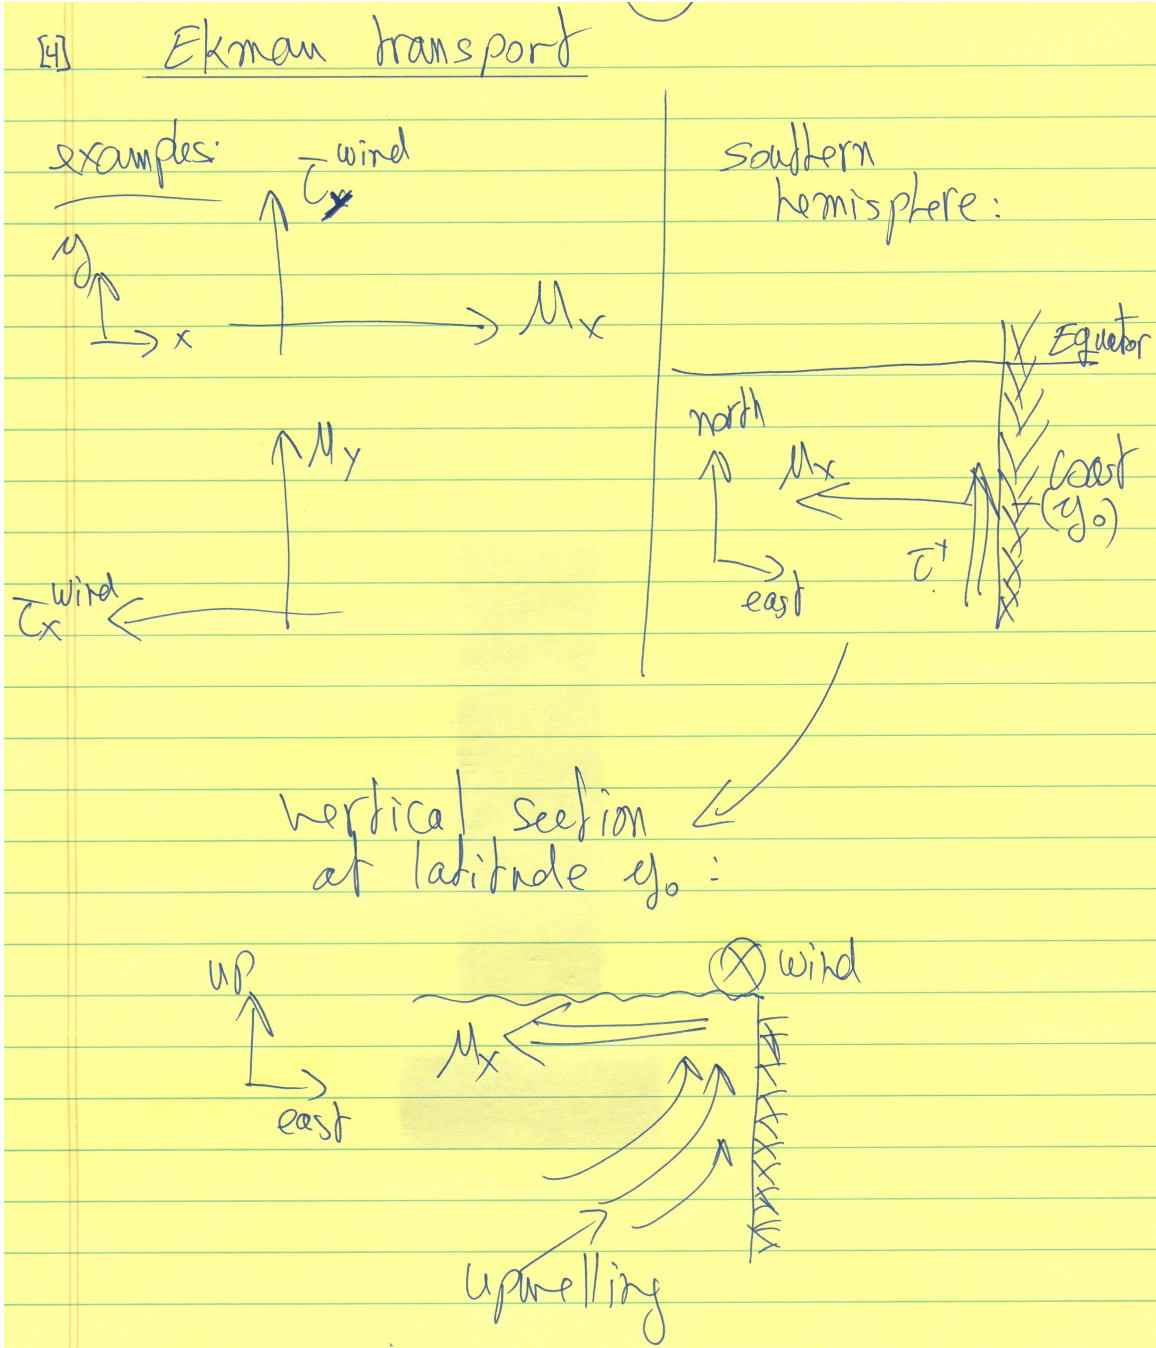 [4] Ekman transport
examples:
τ_y^wind
y
x
M_x
M_y
τ_x^wind
southern
hemisphere:
Equator
north
M_x
coast
(y₀)
east
vertical section
at latitude y₀:
up
wind
M_x
east
upwelling